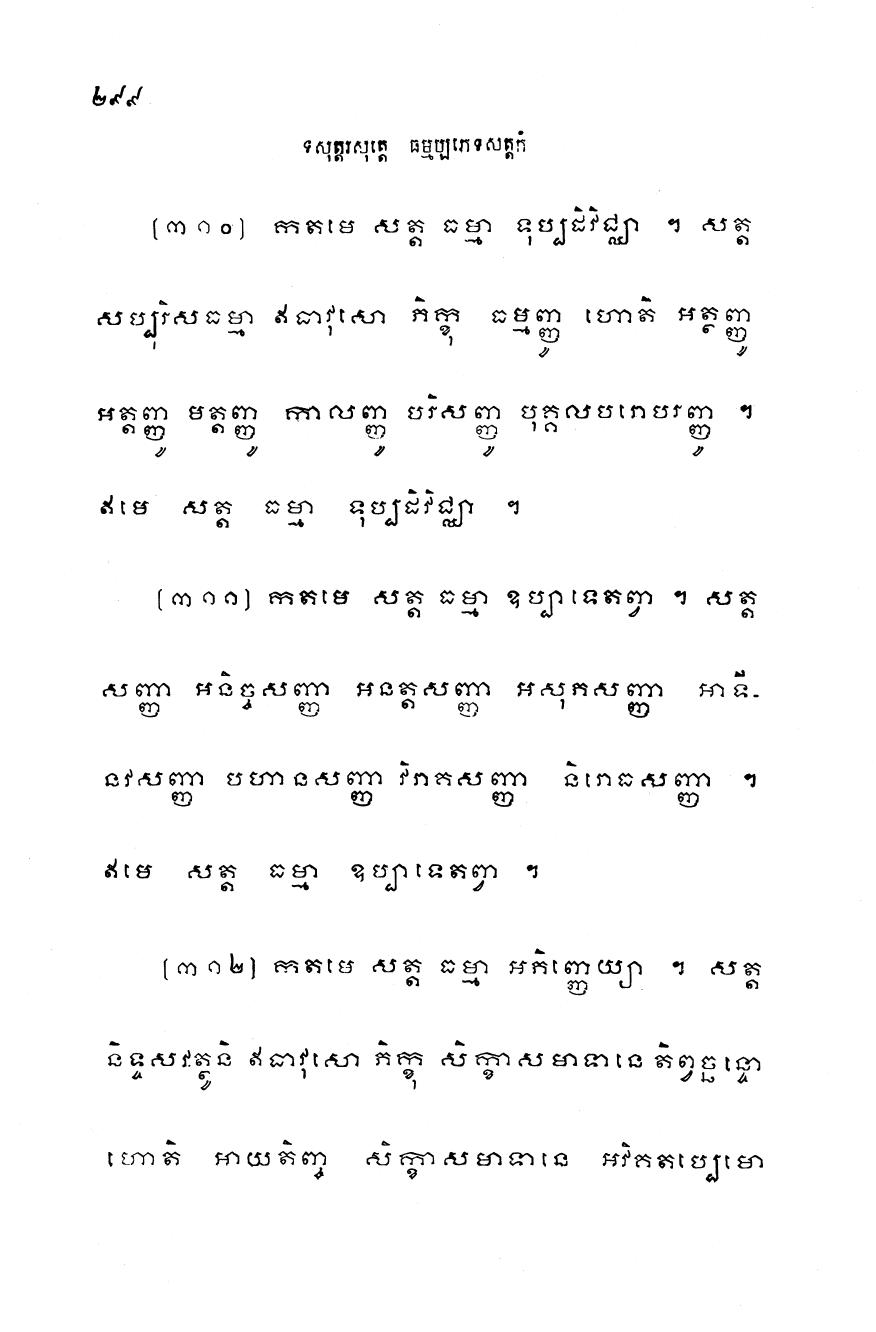 ២៩៩
ទសុត្តរសុត្តេ ធម្មប្បភេទសត្តកំ
[៣១០] កតមេ សត្ត ធម្មា ទុប្បដិវិជ្ឈា ។ សត្ត
សប្បុរិសធម្មា ឥធាវុសោ ភិក្ខុ ធម្មញ្ញូ ហោតិ អត្ថញ្ញូ
អត្តញ្ញូ មត្តញ្ញូ កាលញ្ញូ បរិសញ្ញូ បុគ្គលបរោបរញ្ញូ ។
ឥមេ សត្ត ធម្មា ទុប្បដិវិជ្ឈា ។
[៣១១] កតមេ សត្ត ធម្មា ឧប្បាទេតព្វា ។ សត្ត
សញ្ញា អនិច្ចសញ្ញា អនត្តសញ្ញា អសុភសញ្ញា អាទី-
នវសញ្ញា បហានសញ្ញា វិរាគសញ្ញា និរោធសញ្ញា ។
ឥមេ សត្ត ធម្មា ឧប្បាទេតព្វា ។
[៣១២] កតមេ សត្ត ធម្មា អភិញ្ញេយ្យា ។ សត្ត
និទ្ទសវត្ថូនិ ឥធាវុសោ ភិក្ខុ សិក្ខាសមាទានេ តិព្វច្ឆន្ទោ
ហោតិ អាយតិញ្ច សិក្ខាសមាទានេ អវិគតប្បេមោ